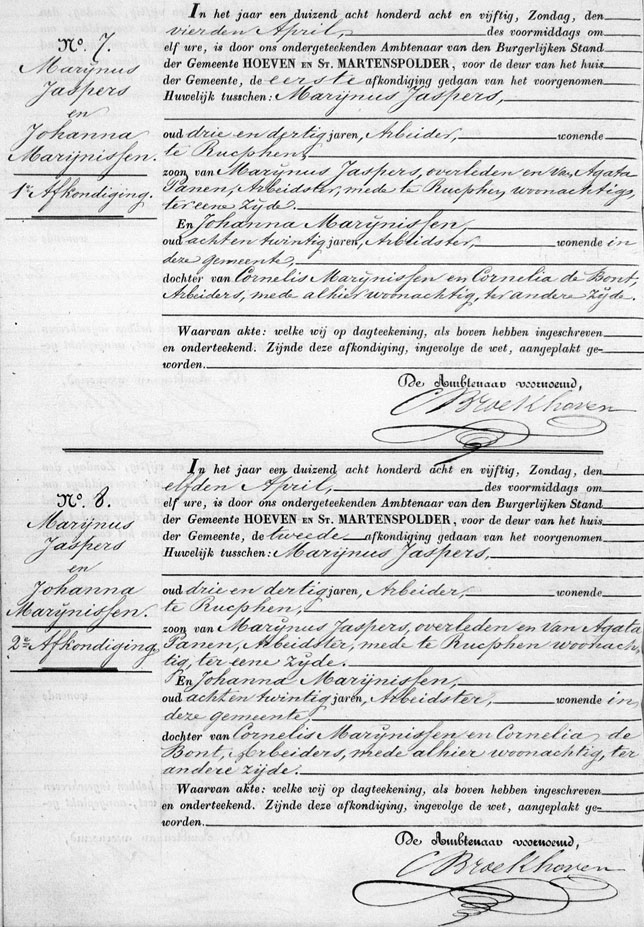 Nº. 7.
Marijnus
Jaspers
en
Johanna
Marijnissen.
1e Afkondiging.
In het jaar een duizend acht honderd acht en vijftig, Zondag, den
vierden April, des voormiddags om
elf ure, is door ons ondergeteekenden Ambtenaar van den Burgerlijken Stand
der Gemeente HOEVEN EN ST. MARTENSPOLDER, voor de deur van het huis
der Gemeente, de eerste afkondiging gedaan van het voorgenomen
Huwelijk tusschen: Marijnus Jaspers,
oud drie en dertig jaren, Arbeider, wonende
te Rucphen,
zoon van Marijnus Jaspers, overleden en van Agata
Panen, Arbeidster, mede te Rucphen, woonachtig,
ter eene zijde.
En Johanna Marijnissen,
oud acht en twintig jaren, Arbeidster, wonende in
deze gemeente,
dochter van Cornelis Marijnissen en Cornelia de Bont,
Arbeiders, mede alhier woonachtig, ter andere zijde.
Waarvan akte: welke wij op dagteekening, als boven hebben ingeschreven
en onderteekend. Zijnde deze afkondiging, ingevolge de wet, aangeplakt ge-
worden.
De Ambtenaar voornoemd,
C Broekhoven
Nº. 8.
Marijnus
Jaspers
en
Johanna
Marijnissen.
2e Afkondiging
In het jaar een duizend acht honderd acht en vijftig, Zondag, den
elfden April, des voormiddags om
elf ure, is door ons ondergeteekenden Ambtenaar van den Burgerlijken Stand
der Gemeente HOEVEN EN ST. MARTENSPOLDER, voor de deur van het huis
der Gemeente, de tweede afkondiging gedaan van het voorgenomen
Huwelijk tusschen: Marijnus Jaspers,
oud drie en dertig jaren, Arbeider, wonende
te Rucphen,
zoon van Marijnus Jaspers, overleden en van Agata
Panen, Arbeidster, mede te Rucphen woonach-
tig, ter eene zijde.
En Johanna Marijnissen,
oud acht en twintig jaren, Arbeidster, wonende in
deze gemeente,
dochter van Cornelis Marijnissen en Cornelia de
Bont, Arbeiders, mede alhier woonachtig, ter
andere zijde.
Waarvan akte: welke wij op dagteekening, als boven hebben ingeschreven
en onderteekend. Zijnde deze afkondiging, ingevolge de wet, aangeplakt ge-
worden.
De Ambtenaar voornoemd,
C Broekhoven